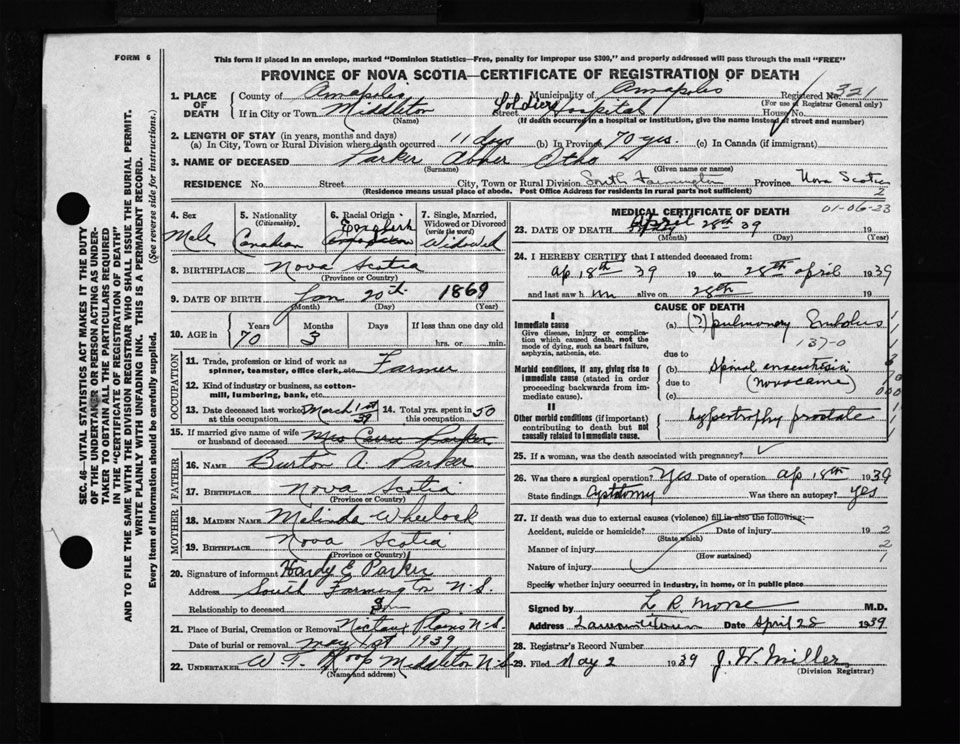 FORM 6
This form if placed in an envelope, marked "Dominion Statistics—Free, penalty for improper use $300," and properly addressed will pass through the mail "FREE"
PROVINCE OF NOVA SCOTIA—CERTIFICATE OF REGISTRATION OF DEATH
1. PLACE OF DEATH County of Annapolis Municipality of Annapolis Registered No. 321
(For use of Registrar General only)
If in City or Town Middleton Street Soldiers Hospital House No.
(Name) (If death occurred in a hospital or institution, give the name instead of street and number)
2. LENGTH OF STAY (in years, months and days)
(a) In City, Town or Rural Division where death occurred 11 days (b) In Province 70 yrs. (c) In Canada (if immigrant)
3. NAME OF DECEASED Parker Abner Otho
(Surname) (Given name or names)
RESIDENCE No. Street City, Town or Rural Division South Farmington Province Nova Scotia
(Residence means usual place of abode. Post Office Address for residents in rural parts not sufficient) 2
4. Sex Male
5. Nationality (Citizenship) Canadian
6. Racial Origin English
7. Single, Married, Widowed or Divorced (write the word) Widowed
8. BIRTHPLACE Nova Scotia
(Province or Country)
9. DATE OF BIRTH Jan 20th 1869
(Month) (Day) (Year)
10. AGE in Years 70 Months 3 Days If less than one day old hrs. or min.
OCCUPATION
11. Trade, profession or kind of work as spinner, teamster, office clerk, etc. Farmer
12. Kind of industry or business, as cotton-mill, lumbering, bank, etc.
13. Date deceased last worked at this occupation March 1st 39 14. Total yrs. spent in this occupation 50
15. If married give name of wife or husband of deceased Mrs Carrie Parker
FATHER
16. NAME Burton A. Parker
17. BIRTHPLACE Nova Scotia
(Province or Country)
MOTHER
18. MAIDEN NAME Melinda Wheelock
19. BIRTHPLACE Nova Scotia
(Province or Country)
20. Signature of informant Hardy E Parker
Address South Farmington N.S.
Relationship to deceased Son
21. Place of Burial, Cremation or Removal Nictaux Plains N.S.
Date of burial or removal May 1st 1939
22. UNDERTAKER W. T. Roop Middleton N.S
(Name and address)
MEDICAL CERTIFICATE OF DEATH 01-06-23
23. DATE OF DEATH April 28th 39 19
(Month) (Day)
24. I HEREBY CERTIFY that I attended deceased from:
Ap 18th 39 19 to 28th April 1939
and last saw him alive on 28th 19
CAUSE OF DEATH
I
Immediate cause
Give disease, injury or complication which caused death, not the mode of dying, such as heart failure, asphyxia, asthenia, etc.
(a) (?) pulmonary Embolus
137-0
due to
Morbid conditions, if any, giving rise to immediate cause (stated in order proceeding backwards from immediate).
(b) Spinal anaesthesia
due to (Novocaine)
(c)
II
Other morbid conditions (if important) contributing to death but not causally related to immediate cause.
hypertrophy prostate
25. If a woman, was the death associated with pregnancy?
26. Was there a surgical operation? Yes Date of operation Ap 18th 1939
State findings Cystotomy Was there an autopsy? yes
27. If death was due to external causes (violence) fill in also the following:
Accident, suicide or homicide? Date of injury 19 2
(State which)
Manner of injury 2
(How sustained)
Nature of injury 1
Specify whether injury occurred in industry, in home, or in public place
Signed by L R Morse M.D.
Address Lawrencetown Date April 28 1939
28. Registrar's Record Number
29. Filed May 2 1939 J. W. Miller
(Division Registrar)
SEC. 46—VITAL STATISTICS ACT MAKES IT THE DUTY
OF THE UNDERTAKER OR PERSON ACTING AS UNDER-
TAKER TO OBTAIN ALL THE PARTICULARS REQUIRED
IN THE "CERTIFICATE OF REGISTRATION OF DEATH"
AND TO FILE THE SAME WITH THE DIVISION REGISTRAR WHO SHALL ISSUE THE BURIAL PERMIT.
WRITE PLAINLY WITH UNFADING INK. THIS IS A PERMANENT RECORD.
Every item of information should be carefully supplied. (See reverse side for instructions.)